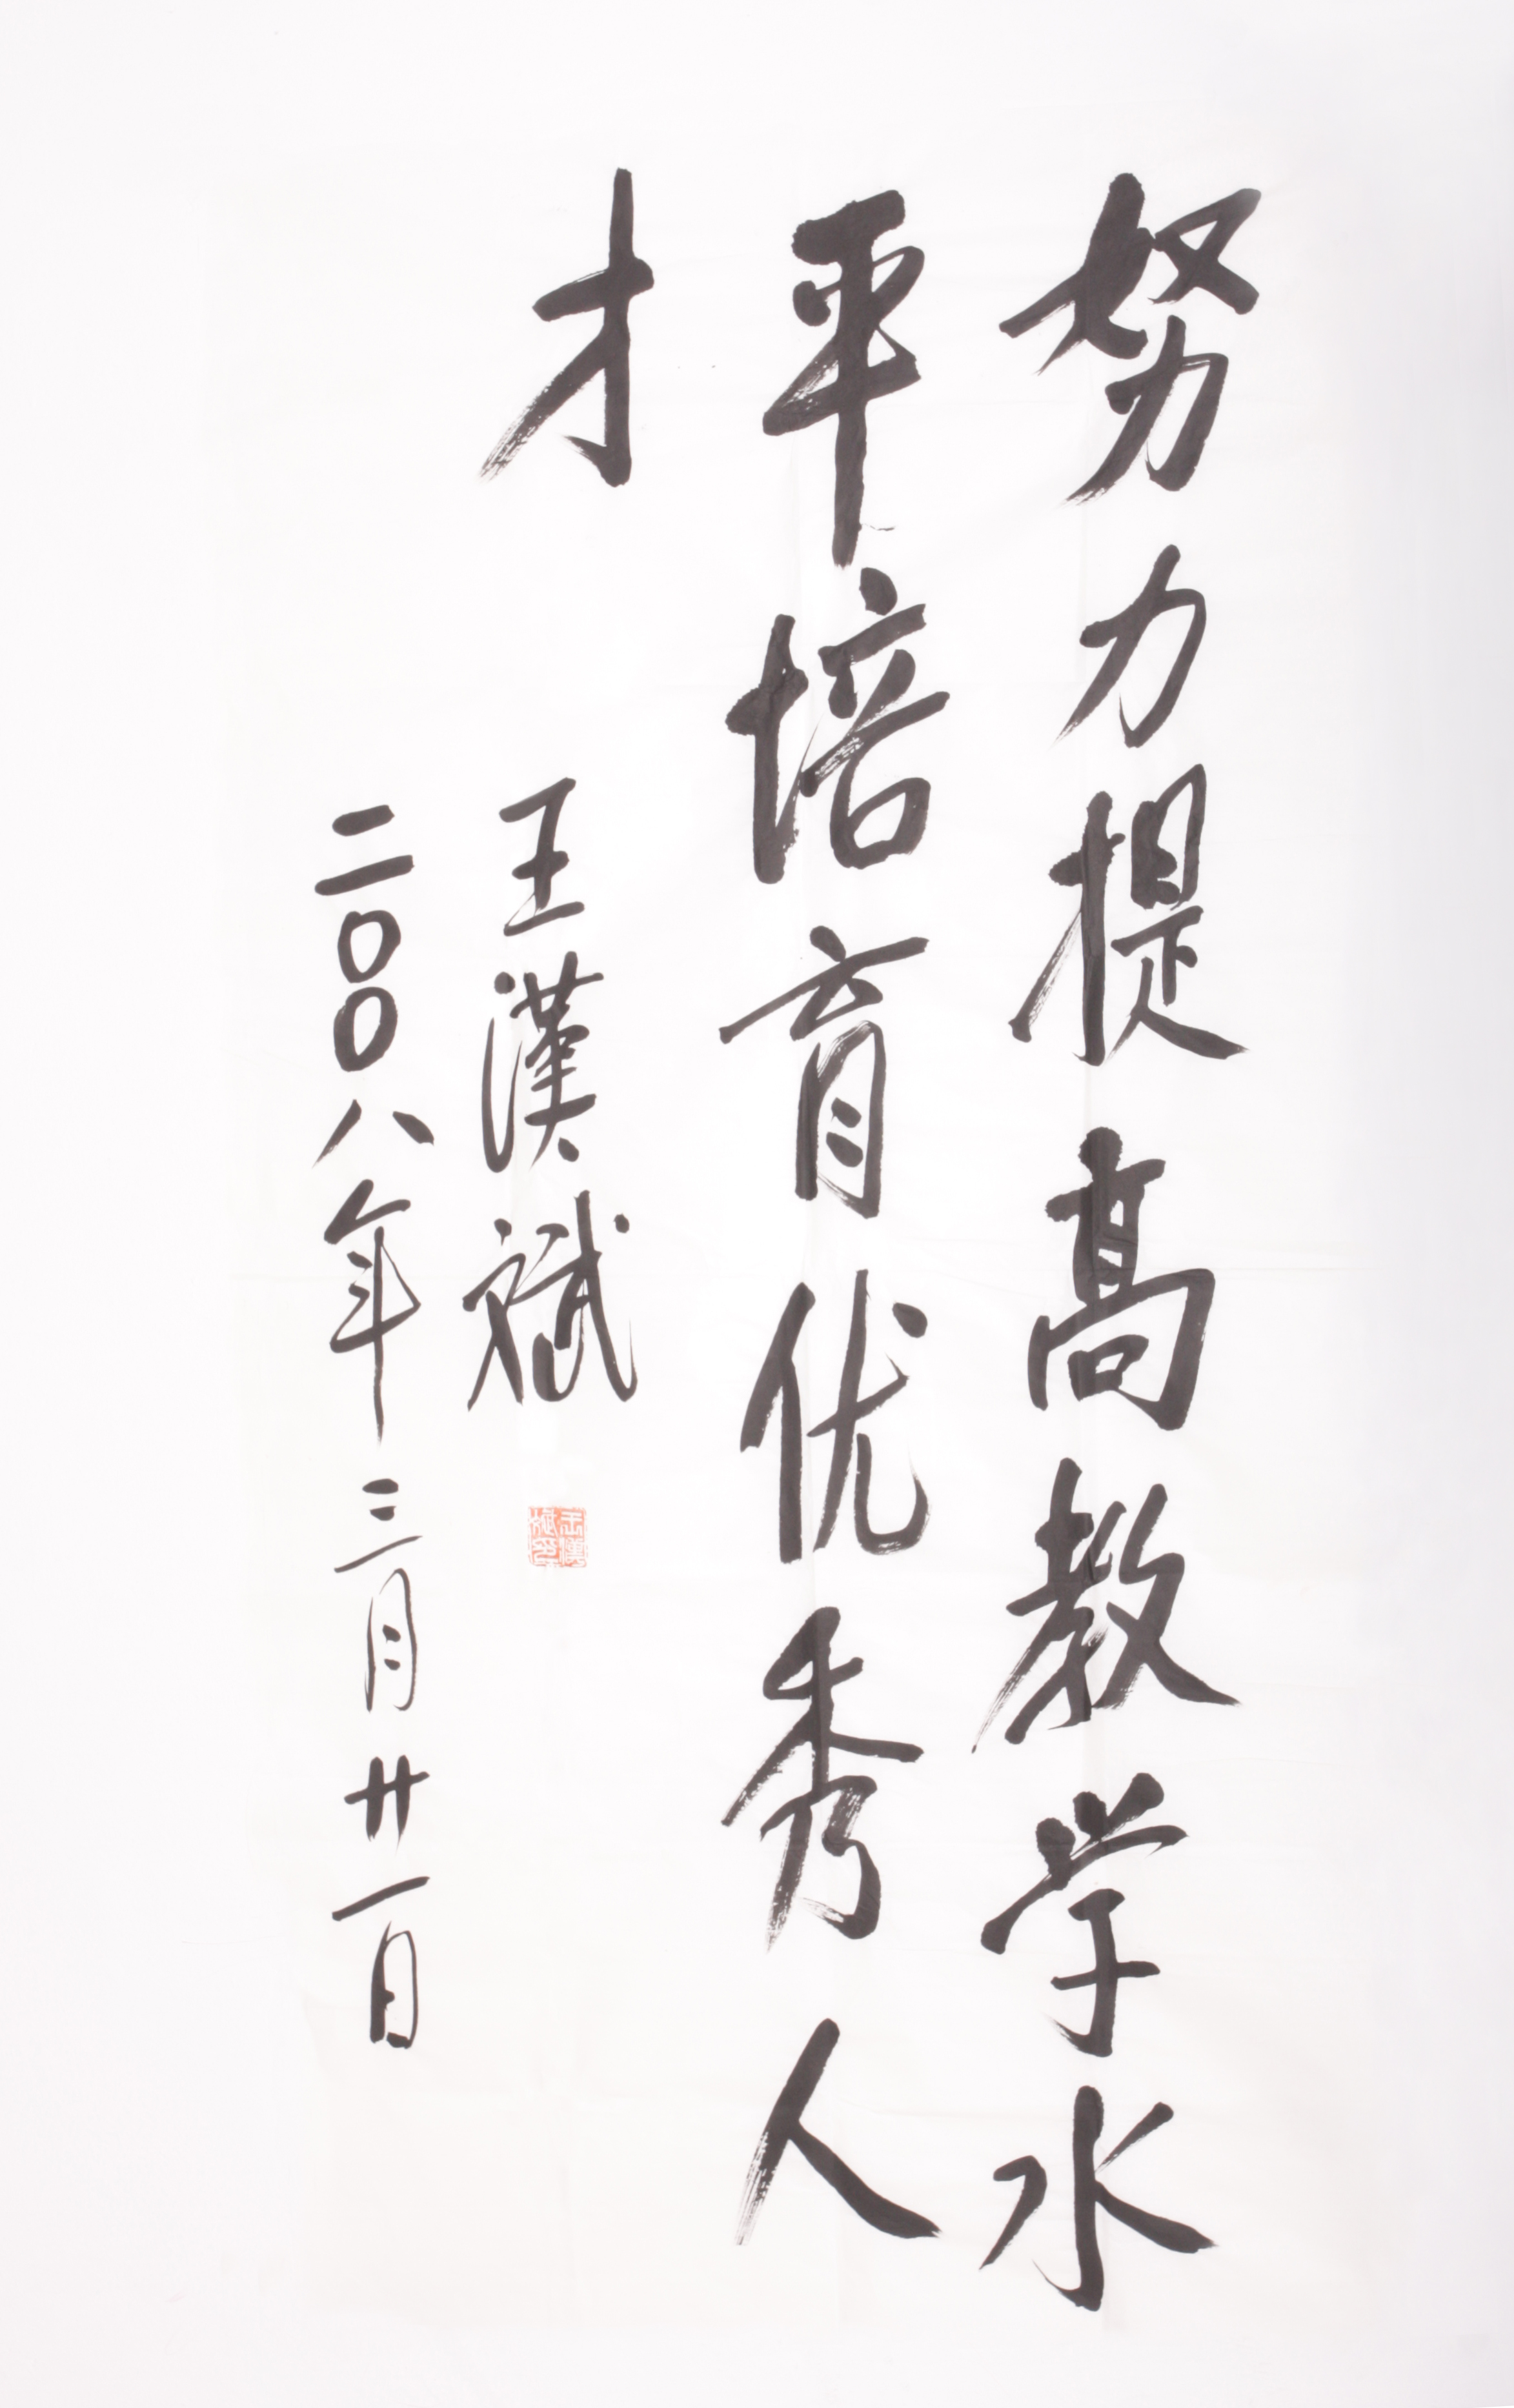 努力提高教学水
平培育优秀人
才
王漢斌
二〇〇八年三月廿一日
王漢斌印